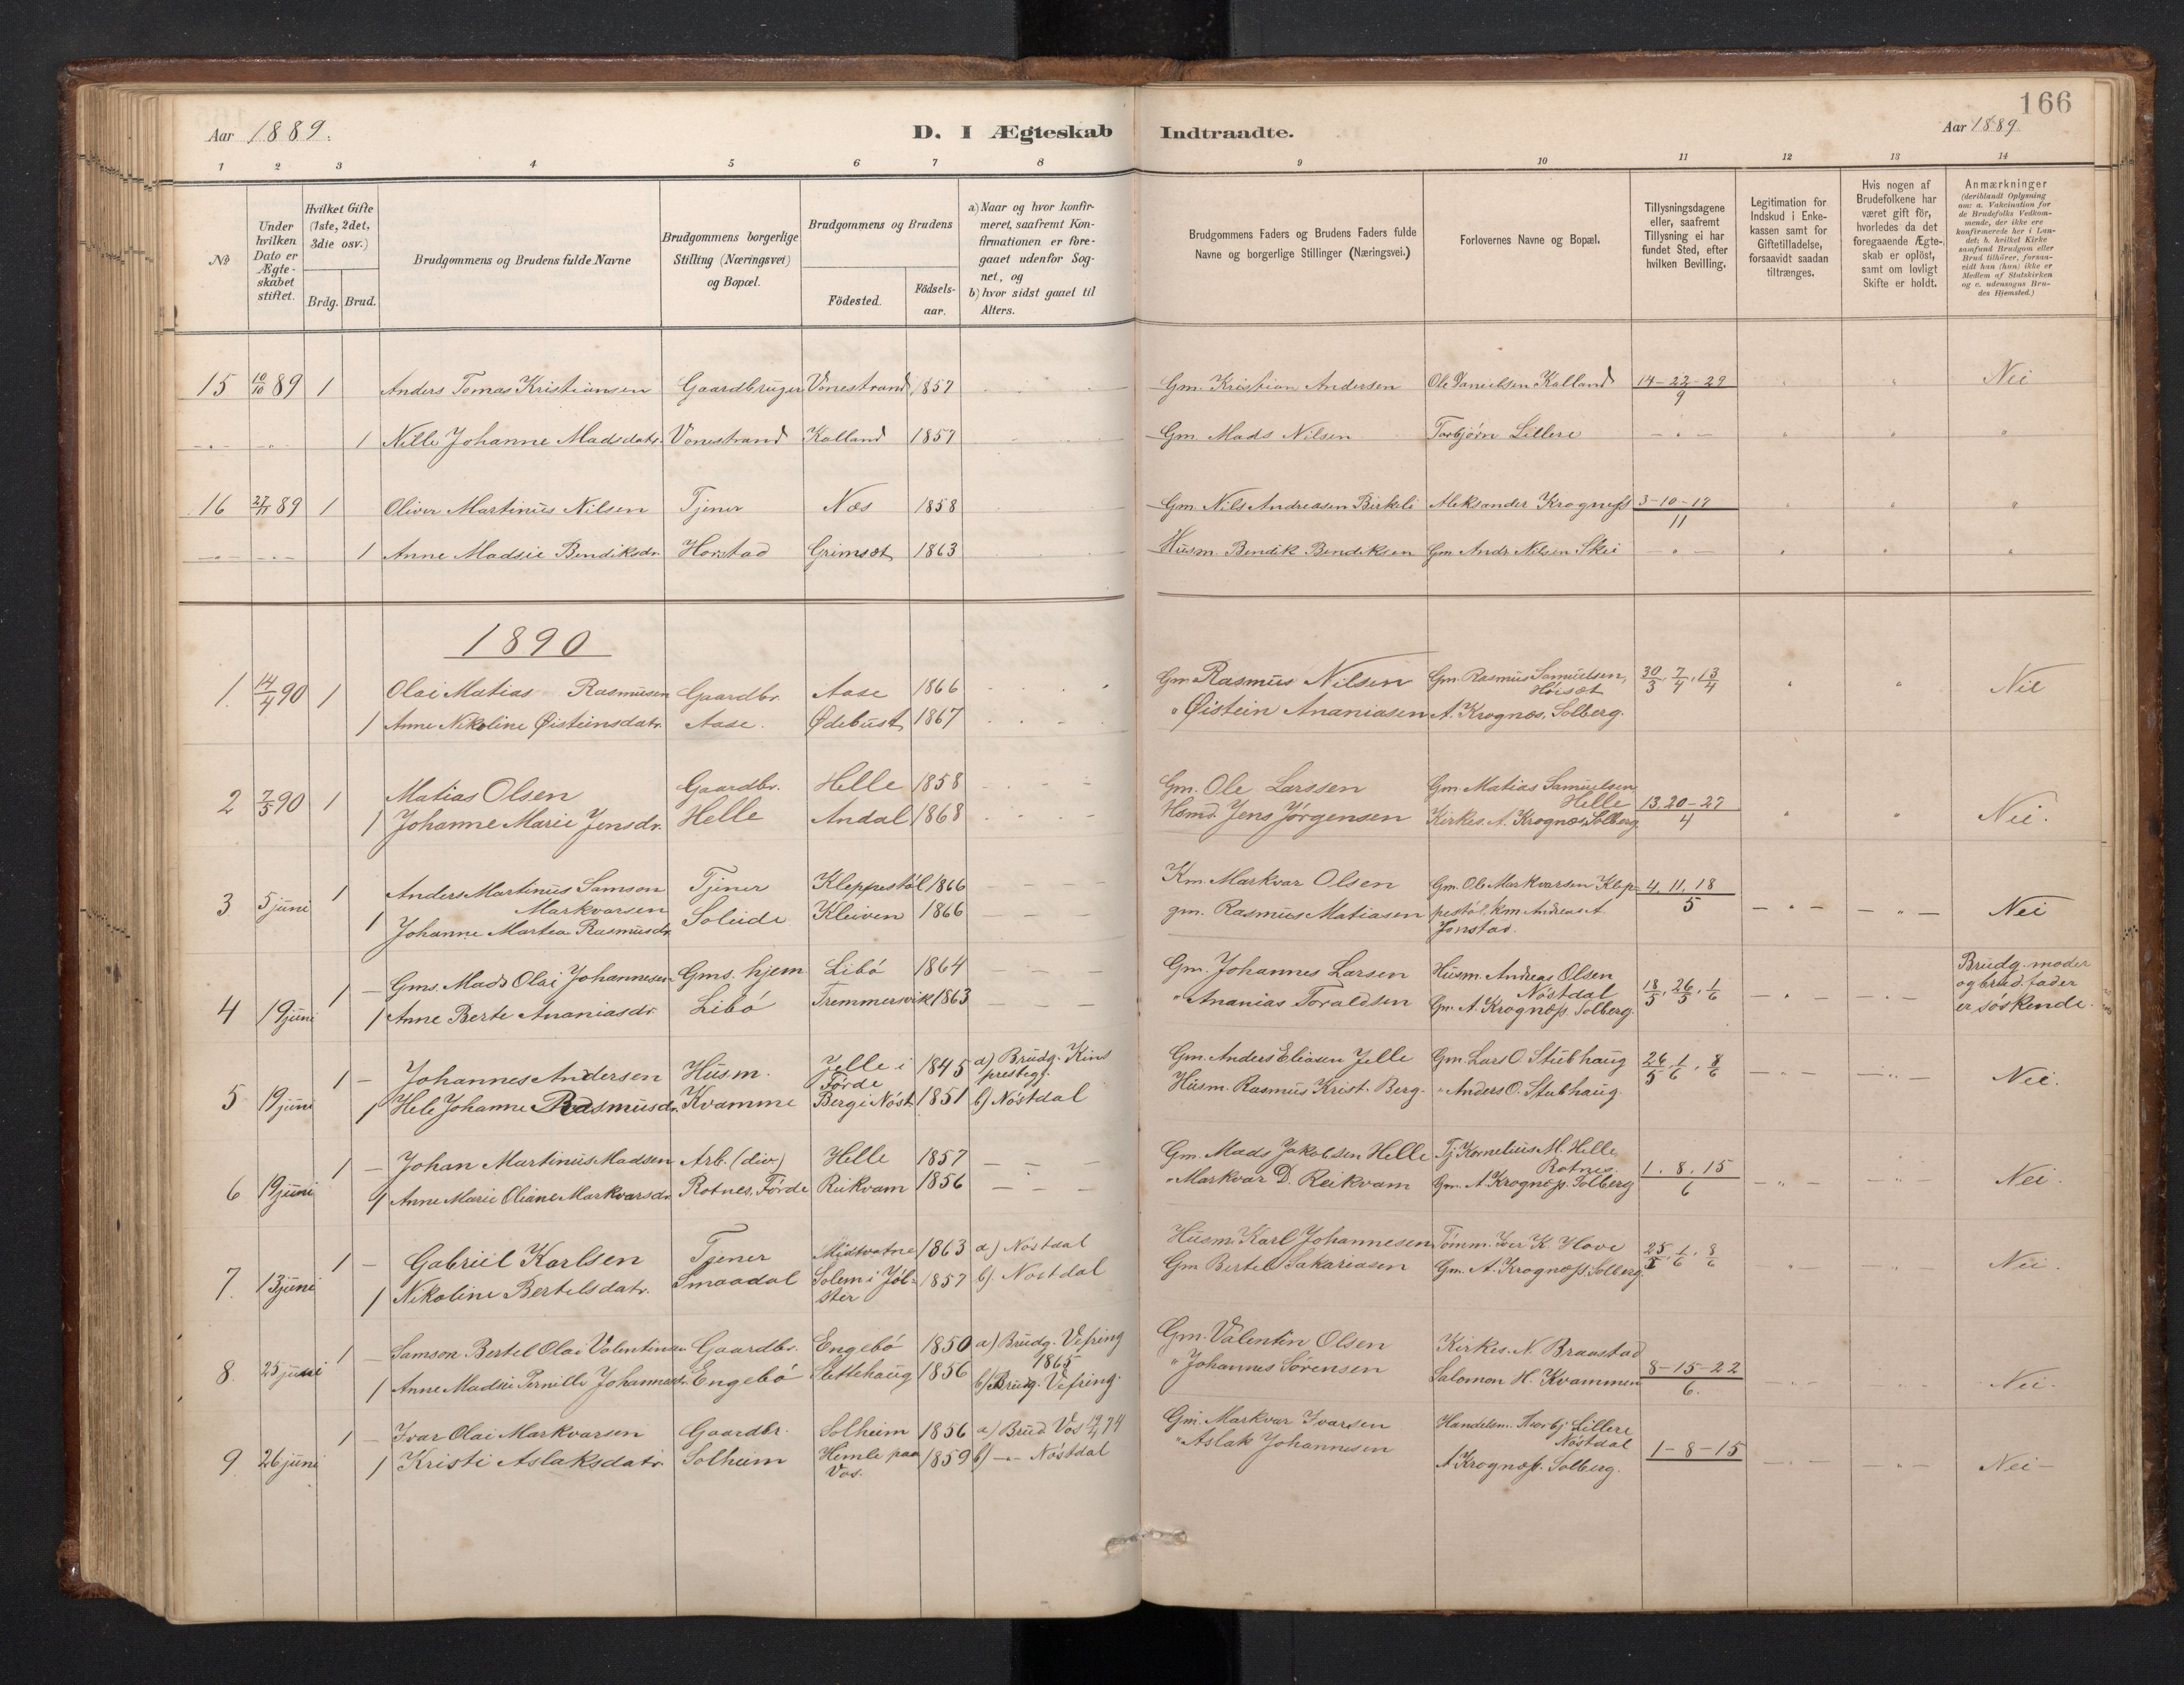 166
Aar 1889.
D. I Ægteskab Indtraadte.
Aar 1889
1 2 3 4 5 6 7 8 9 10 11 12 13 14
No
Under hvilken Dato er Ægteskabet stiftet.
Hvilket Gifte (1ste, 2det, 3die osv.)
Brdg. Brud.
Brudgommens og Brudens fulde Navne
Brudgommens borgerlige Stilling (Næringsvei) og Bopæl.
Brudgommens og Brudens
Födested.
Födselsaar.
a) Naar og hvor konfirmeret, saafremt Konfirmationen er foregaaet udenfor Sognet, og
b) hvor sidst gaaet til Alters.
Brudgommens Faders og Brudens Faders fulde Navne og borgerlige Stillinger (Næringsvei.)
Forlovernes Navne og Bopæl.
Tillysningsdagene eller, saafremt Tillysning ei har fundet Sted, efter hvilken Bevilling.
Legitimation for Indskud i Enkekassen samt for Giftetilladelse, forsaavidt saadan tiltrænges.
Hvis nogen af Brudefolkene har været gift för, hvorledes da det foregaaende Ægteskab er oplöst, samt om lovligt Skifte er holdt.
Anmærkninger (deriblandt Oplysning om: a. Vakcination for de Brudefolks Vedkommende, der ikke ere konfirmerede her i Landet; b. hvilket Kirkesamfund Brudgom eller Brud tilhörer, forsaavidt han (hun) ikke er Medlem af Statskirken og c. udensogns Brudes Hjemsted.)
15 10/10 89 1 Anders Tomas Kristiansen Gaardbruger Vonestrand 1857 Gm. Kristian Andersen Ole Danielsen Kalland 14-22-29/9 Nei
1 Nille Johanne Madsdatr. Vonestrand Kalland 1857 Gm. Mads Nilsen Torbjørn Lillere
16 27/11 89 1 Oliver Martinus Nilsen Tjener Næs 1858 Gm. Nils Andreasen Birkeli Aleksander Krogness 3-10-17/11
1 Anne Madsie Bendiksdr. Horstad Grimsæt 1863 Husm. Bendik Bendiksen Gm Andr Nilsen Skei
1890
1. 14/4 90 1 Olai Matias Rasmusen Gaardbr. Aase 1866 Gm Rasmus Nilsen Gm. Rasmus Samuelsen, Høisæt 30/3. 7/4. 13/4 Nei
1 Anne Nikoline Øisteinsdatr. Aase. Ødebust 1867 " Øistein Ananiasen A. Krognæs, Solberg.
2 7/5 90 1 Matias Olsen Gaardbr. Helle 1858 Gm. Ole Larssen Gm Matias Samuelsen Helle 13.20-27/4 Nei.
1 Johanne Marie Jensdr. Helle Andal 1868 Hsmd. Jens Jörgensen Kirkes. A. Krognæs, Solberg.
3 5 juni 1 Anders Martinus Samson Markvarsen Tjener Kleppestöl 1866 Km. Markvar Olsen Gm. Ole Markvarsen Kleppestöl. 4. 11. 18/5 Nei
1 Johanne Martea Rasmusdr. Soleide Kleiven 1866 gm. Rasmus Matiasen km Andreas A. Jonstad.
4 19 juni 1 Gms. Mads Olai Johannesen Gms. hjem Libö 1864 Gm. Johannes Larsen Husm. Andreas Olsen Nöstdal 18/5. 26/5. 1/6 Brudg. moder og brud. fader er söskende.
1 Anne Berte Ananiasdr. Libö Tremmersvik 1863 " Ananias Toraldsen Gm. A. Krogness. Solberg.
5 19 juni 1 Johannes Andersen Husm. Jelle i Förde 1845 a) Brudg. Kins prestegj. Gm. Anders Eliasen Jelle Gm. Lars O. Stubhaug 26/5. 1/6. 8/6 Nei.
1 Hele Johanne Rasmusdr. Kvamme Berg i Nöst. 1851 b) Nöstdal Husm. Rasmus Krist. Berg. " Anders O. Stubhaug.
6 19 juni 1 Johan Martinus Madsen Arb. (div) Helle 1857 Gm. Mads Jakobsen Helle Tj Kornelius M. Helle Rotnes. 1. 8. 15/6 Nei.
1 Anne Marie Oliane Markvarsdr. Rotnes, Förde Reikvam 1856 " Markvar D. Reikvam Gm. A. Krogness. Solberg
7. 13 juni 1 Gabriel Karlsen Tjener Midtvatne 1863 a) Nöstdal Husm. Karl Johannesen Tömm. Iver K. Hove 25/5. 1/6. 8/6 Nei.
1 Nikoline Bertelsdatr. Smaadal Solem i Jölster 1857 b) Nöstdal Gm Bertel Sakariasen Gm. A. Krogness. Solberg.
8. 25 juni 1 Samson Bertel Olai Valentinsen Gaardbr. Engebö 1850 a) Brudg. Vefring 1865 Gm. Valentin Olsen Kirkes. N. Braastad 8-15-22/6. Nei.
1 Anne Madsie Pernille Johannesdr. Engebö Slettehaug 1856 b) Brudg. Vefring. " Johannes Sörensen Salomon H. Kvammen
9 26 juni 1 Ivar Olai Markvarsen Gaardbr. Solheim 1856 a) Brud Vos 19/4 74 Gm. Markvar Ivarsen Handelsm. Thorbj Lillere Nöstdal 1-8-15 Nei-
1 Kristi Aslaksdatr. Solheim Himle paa Vos. 1859 b) -"- Nöstdal " Aslak Johannesen A Krogness. Solberg.